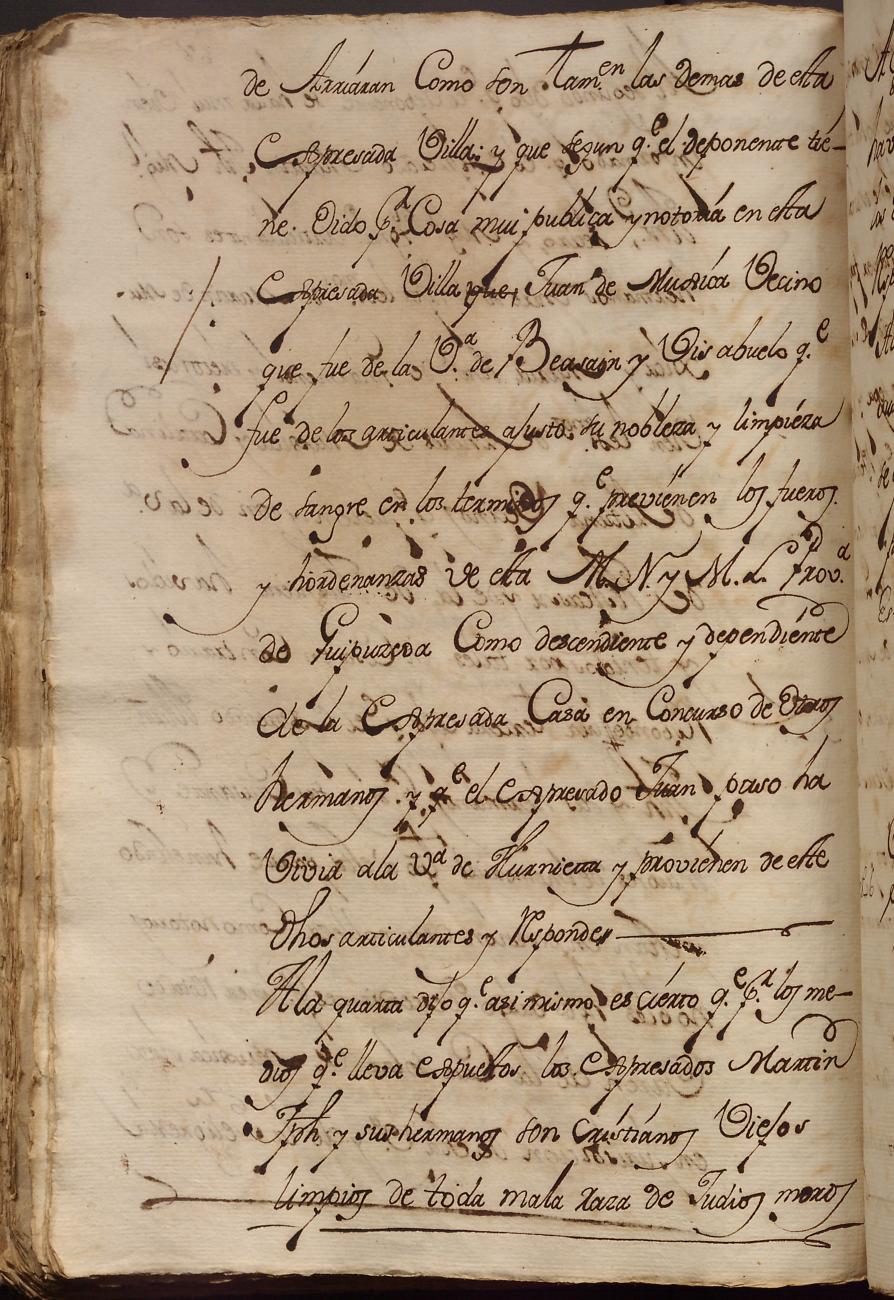 de Arriaran Como son Tamen las Demas de esta
Espresada Villa; y que segun q.e el deponente tie-
ne Oido p.a Cosa mui publica y notoria en esta
Espresada Villa que, Juan de Muxica Vecino
que fue de la V.a de Beasain y Visabuelo q.e
fue de los articulantes ajusto su nobleza y limpieza
de sangre en los terminos q.e previenen los fueros
y hordenanzas de esta M. N. y M. L. Prov.a
de Guipuzcoa Como descendiente y dependiente
de la Espresada Casa en Concurso de Otros
hermanos y q.e el Espresado Juan paso ha
Vivir ala V.a de Hurnieta y provienen de este
Dhos articulantes y Responde
Ala quarta dijo q.e asi mismo es cierto q.e p.a los me-
dios q.e lleva espuestos los Espresados Martin
Jph y sus hermanos son Cristianos Viejos
limpios de toda mala raza de Judios moros